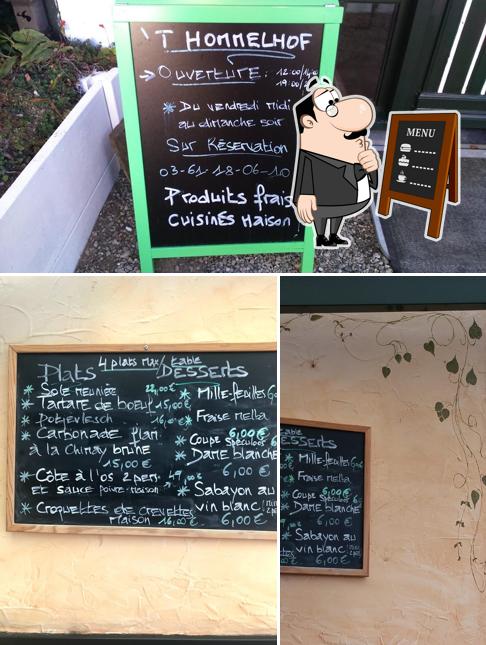 'T HOMMELHOF
→ OUVERTURE: 12:00/14
19:00/2
* Du vendredi midi
au dimanche soir
Sur Réservation
03-61-18-06-10
Produits frais
cuisinés Maison
MENU
4 plats max/table
Plats
* Sole meunière 22,00€
* Tartare de boeuf 15,00€
* Potjevlesch 16,00€
* Carbonade flam
à la Chimay brune
15,00€
* Côte à l'os 2 pers 49,00€
et sauce poivre maison
* Croquettes de crevettes
Maison 16,00€
Desserts
* Mille-feuilles
* Fraise melba
6,00€
* Coupe Spéculoos
* Dame blanche
6,00€
* Sabayon au
vin blanc
6,00€
esserts
* Mille-feuilles
* Fraise melba
6,00€
* Coupe Spéculoos
* Dame blanche
6,00€
* Sabayon au
vin blanc
6,00€